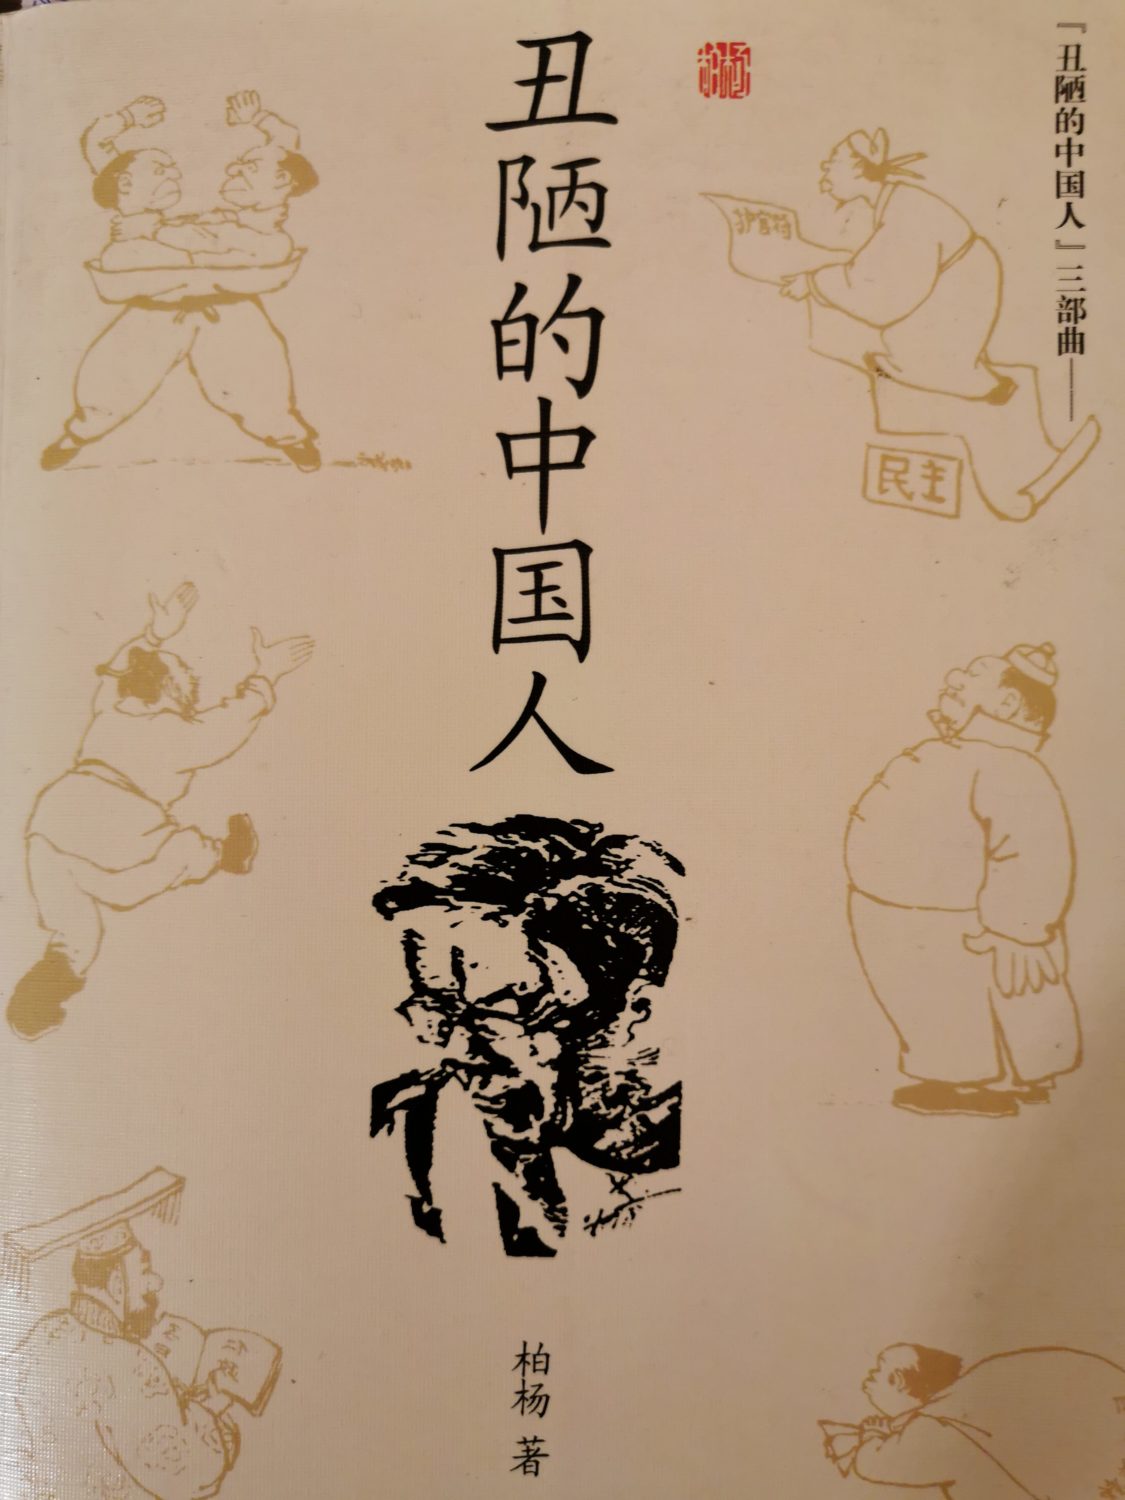 『丑陋的中国人』三部曲——
丑陋的中国人
柏杨
护官符
民主
柏杨 著